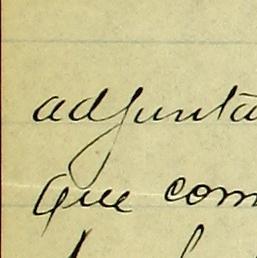 adjunta
que com